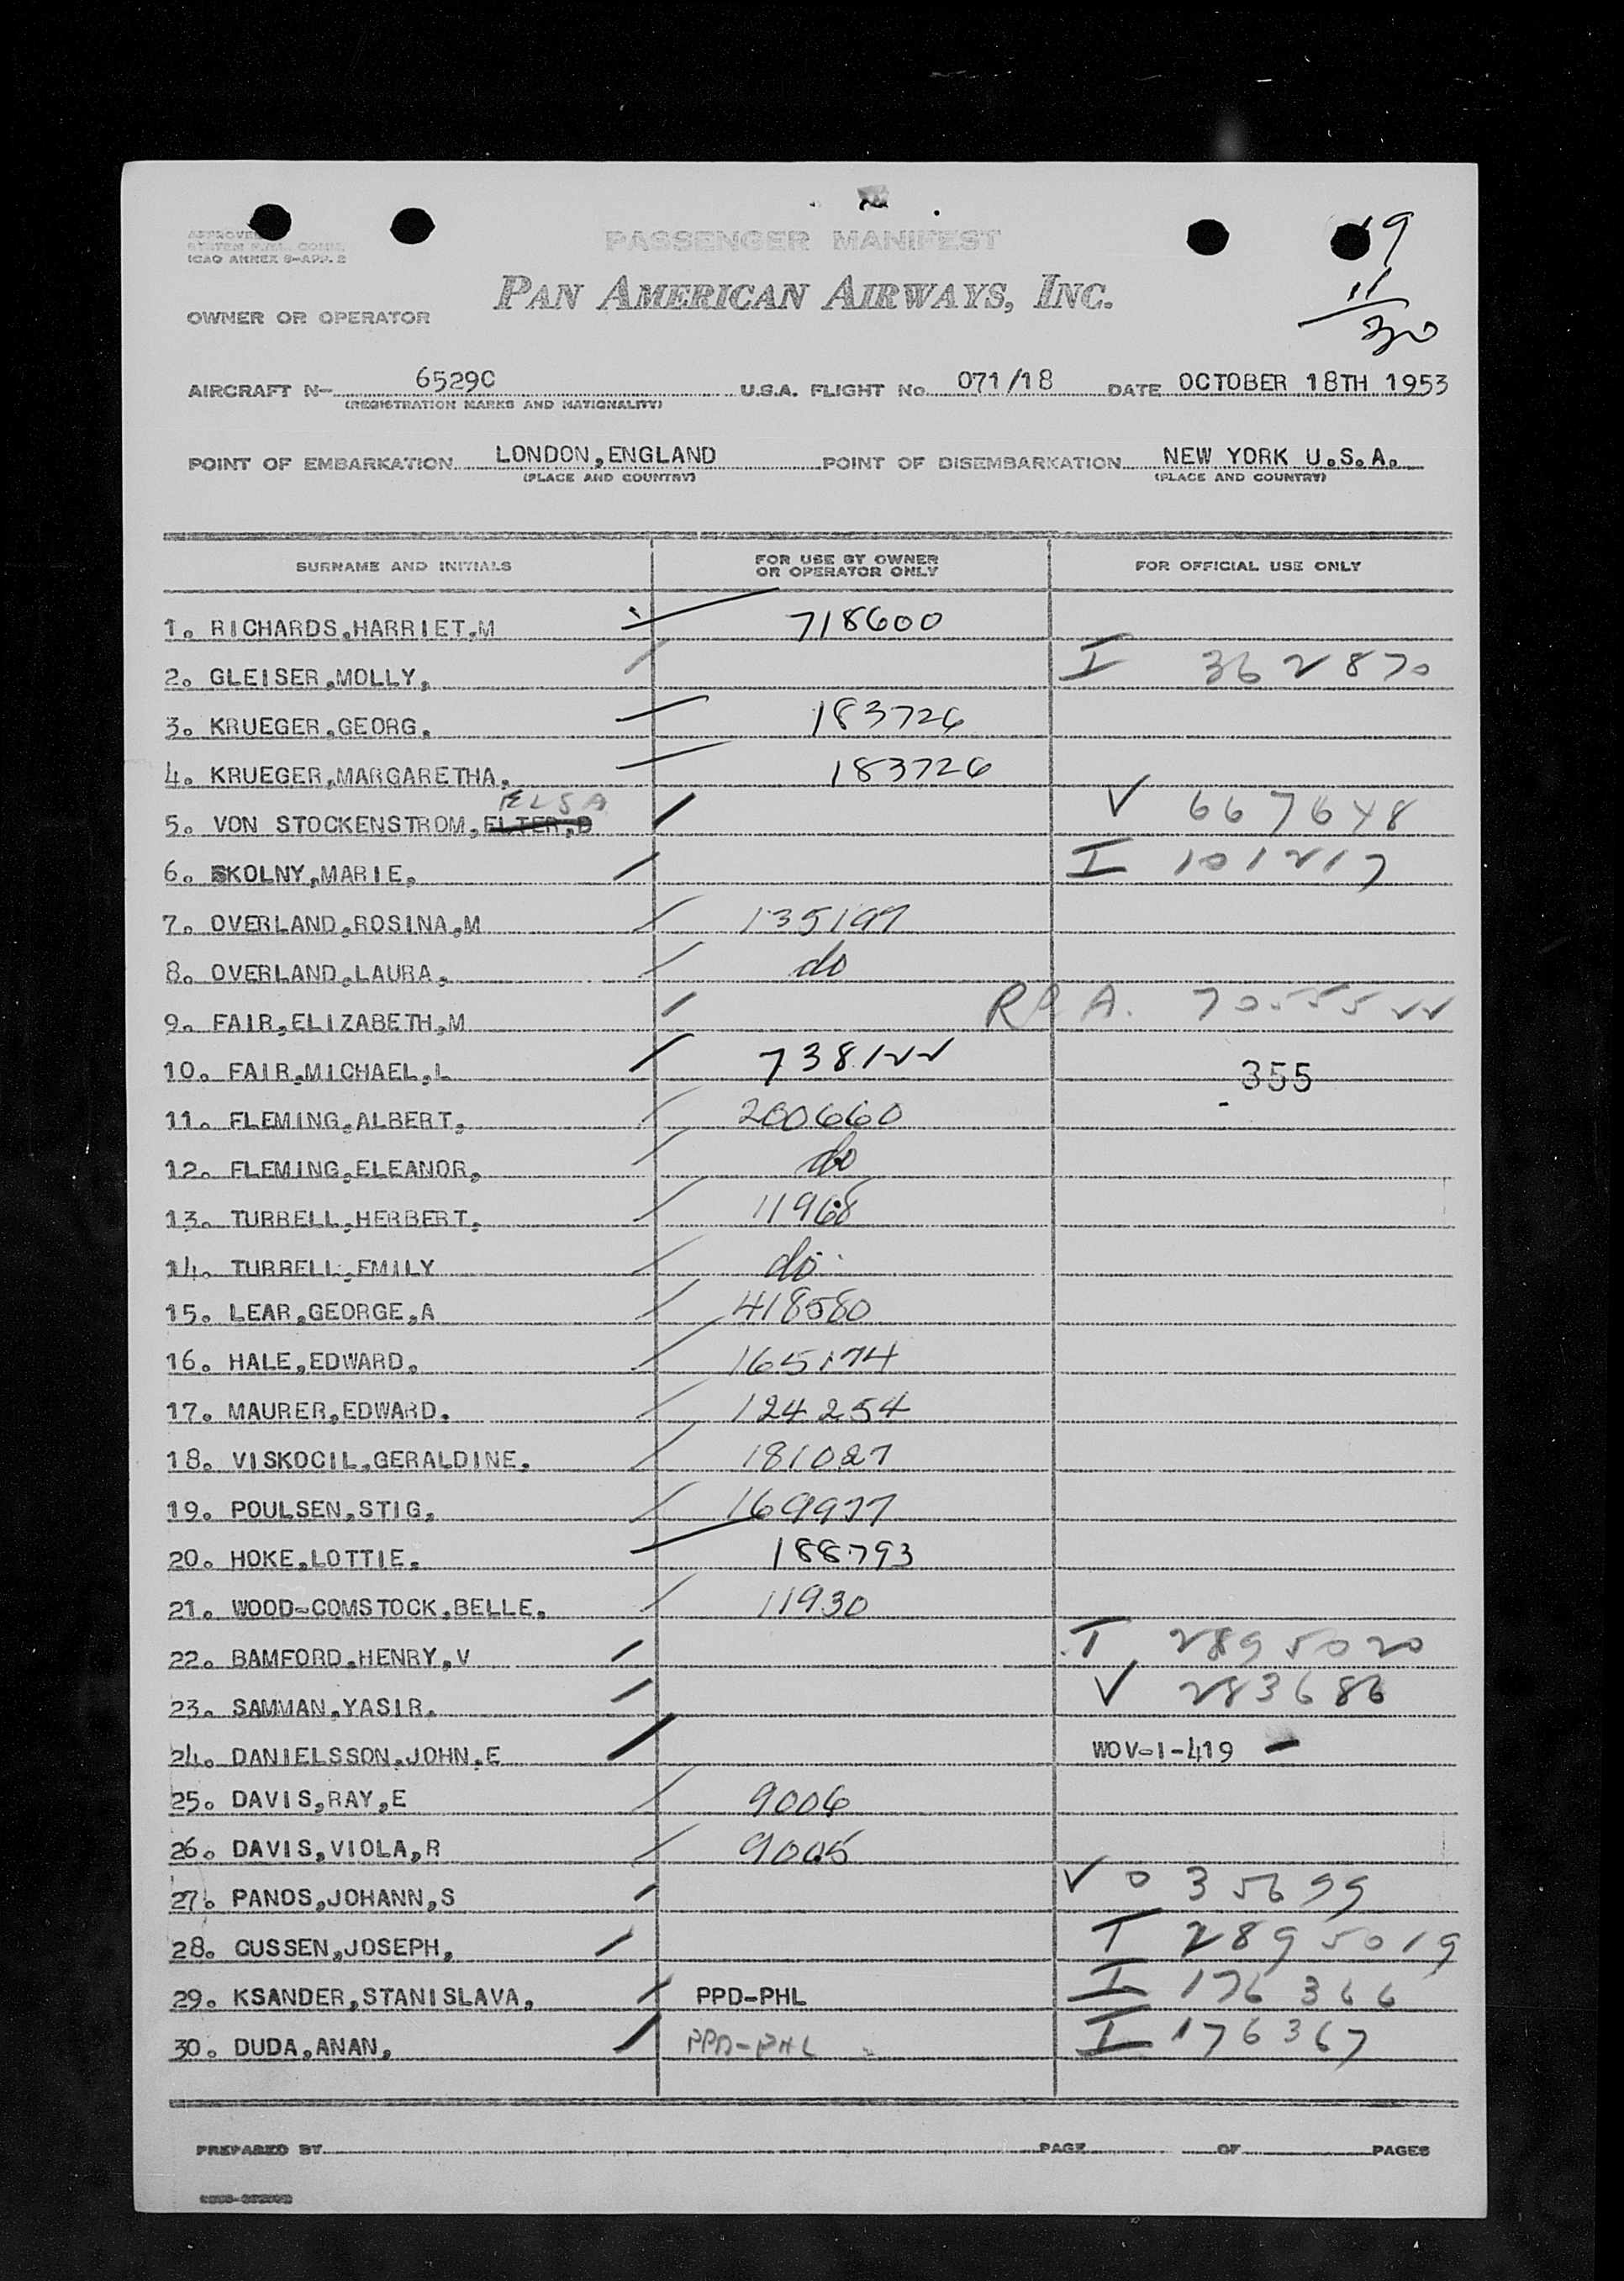 19
11
30
APPROVED
ICAO ANNEX 9-APP. 2
PASSENGER MANIFEST
PAN AMERICAN AIRWAYS, INC.
OWNER OR OPERATOR
AIRCRAFT N- 6529C U.S.A. FLIGHT No. 071/18 DATE OCTOBER 18TH 1953
(REGISTRATION MARKS AND NATIONALITY)
POINT OF EMBARKATION LONDON,ENGLAND POINT OF DISEMBARKATION NEW YORK U.S.A.
(PLACE AND COUNTRY) (PLACE AND COUNTRY)
SURNAME AND INITIALS FOR USE BY OWNER OR OPERATOR ONLY FOR OFFICIAL USE ONLY
1. RICHARDS,HARRIET,M 718600
2. GLEISER,MOLLY, I 362870
3. KRUEGER,GEORG, 183726
4. KRUEGER,MARGARETHA, 183726
ELSA
5. VON STOCKENSTROM,ELTER,D V 667648
6. SKOLNY,MARIE, I 101217
7. OVERLAND,ROSINA,M 135197
8. OVERLAND,LAURA, do
9. FAIR,ELIZABETH,M 7055522
10. FAIR,MICHAEL,L 738122 355
11. FLEMING,ALBERT, 200660
12. FLEMING,ELEANOR, do
13. TURRELL,HERBERT, 11968
14. TURRELL,EMILY do
15. LEAR,GEORGE,A 418580
16. HALE,EDWARD, 165174
17. MAURER,EDWARD. 124254
18. VISKOCIL,GERALDINE, 181027
19. POULSEN,STIG, 169977
20. HOKE,LOTTIE, 188793
21. WOOD-COMSTOCK,BELLE, 11930
22. BAMFORD,HENRY,V T 2895020
23. SAMMAN,YASIR, V 283686
24. DANIELSSON,JOHN,E WOV-1-419
25. DAVIS,RAY,E 9006
26. DAVIS,VIOLA,R 9005
27. PANOS,JOHANN,S V 035699
28. CUSSEN,JOSEPH, T 2895019
29. KSANDER,STANISLAVA, PPD-PHL I 176366
30. DUDA,ANAN, PPD-PHL I 176367
PREPARED BY PAGE OF PAGES